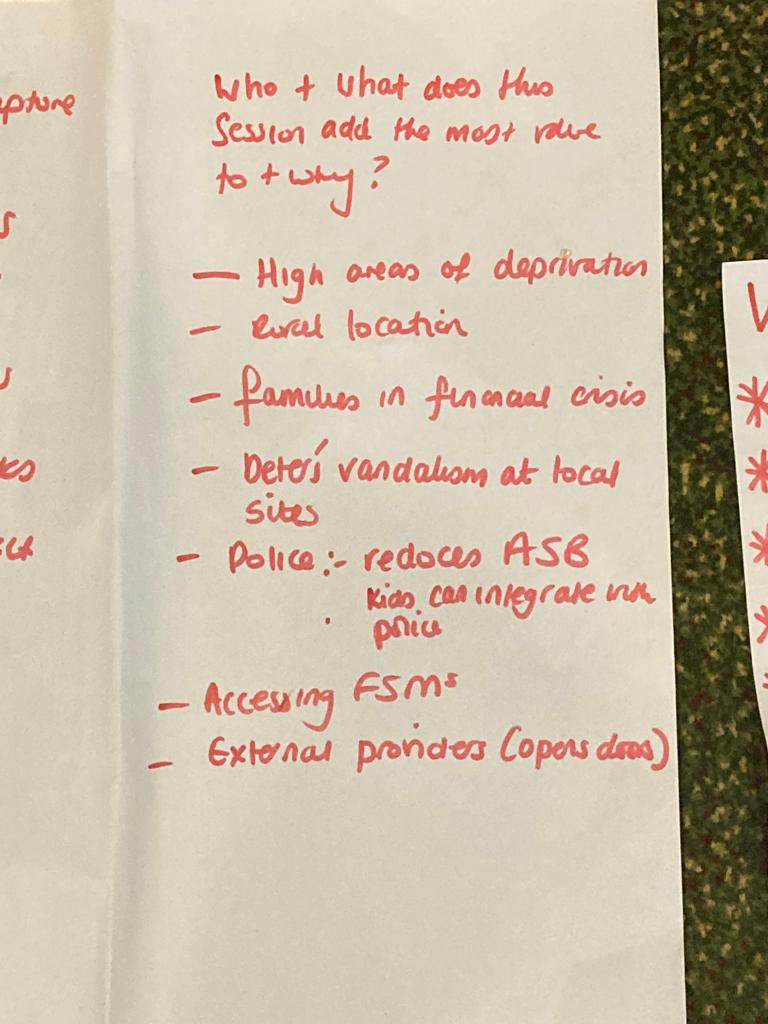 pture
Who + What does this
Session add the most value
to + why?
— High areas of deprivation
— Rural location
— families in financial crisis
— Deters vandalism at local
sites
— Police:- reduces ASB
Kids can integrate with
police
— Accessing FSMs
— External providers (opens doors)